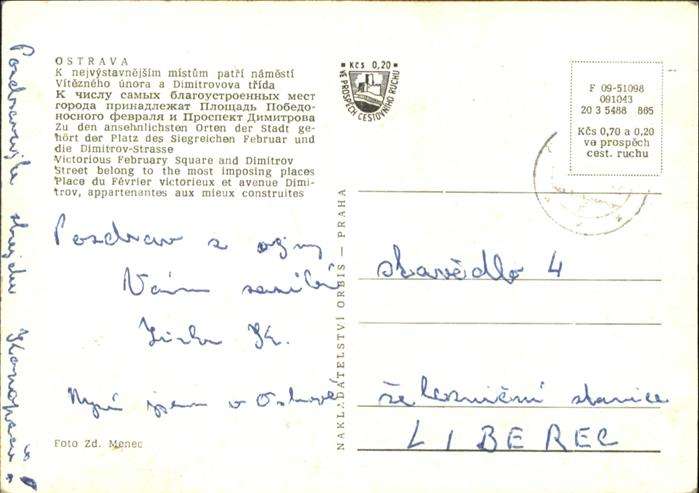 OSTRAVA
K nejvýstavnějším místům patří náměstí
Vítězného února a Dimitrovova třída
К числу самых благоустроенных мест
города принадлежат Площадь Победо-
носного февраля и Проспект Димитрова
Zu den ansehnlichsten Orten der Stadt ge-
hört der Platz des Siegreichen Februar und
die Dimitrov-Strasse
Victorious February Square and Dimitrov
Street belong to the most imposing places
Place du Février victorieux et avenue Dimi-
trov, appartenantes aux mieux construites
Kčs 0,20
VE PROSPĚCH CESTOVNÍHO RUCHU
F 09-51098
091043
20 3 5488 865
Kčs 0,70 a 0,20
ve prospěch
cest. ruchu
Pozdrav z
Vám
Jirka
Nyní jsem v Ostravě
Foto Zd. Menec
NAKLADATELSTVÍ ORBIS — PRAHA
stavědlo 4
železniční stanice
LIBEREC
Pozdravujte